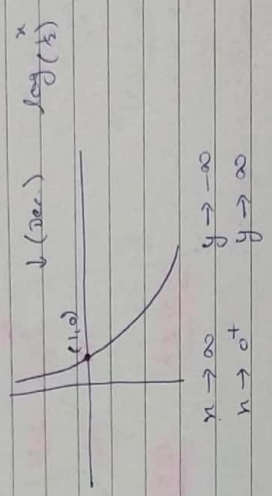 ↓ (Dec.) log(½)^x
(1,0)
x → ∞ y → -∞
x → 0⁺ y → ∞